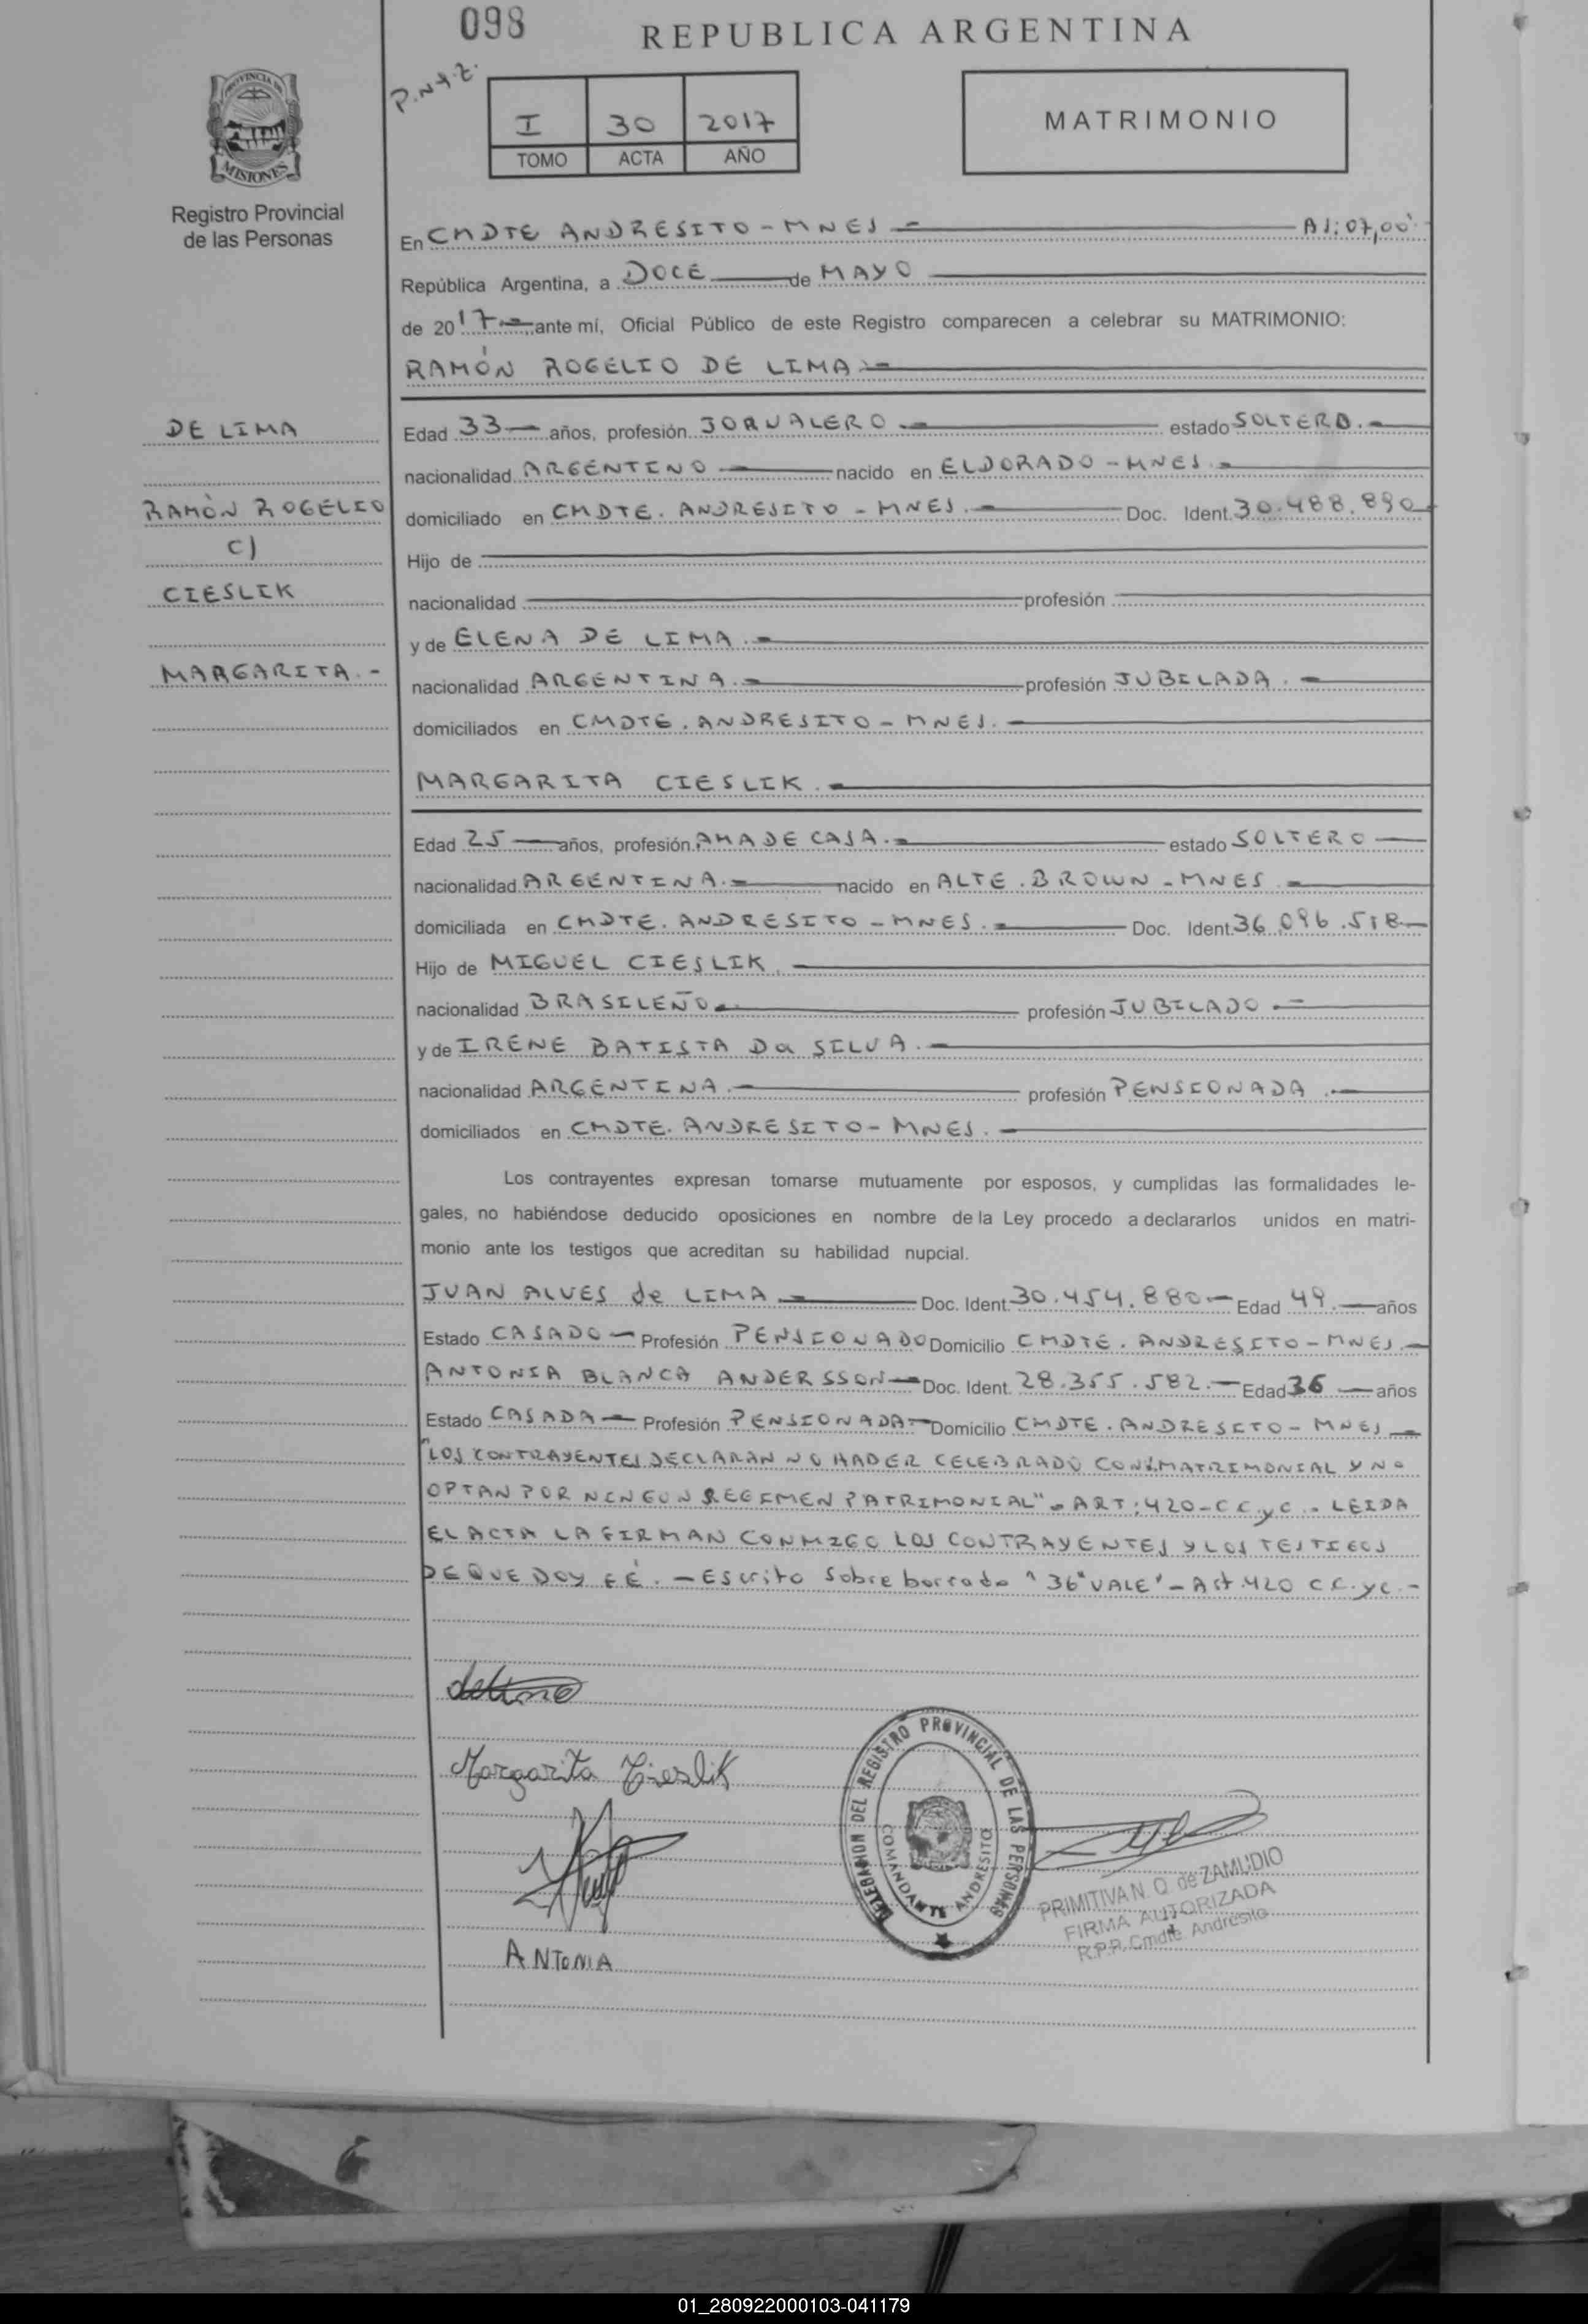 098
REPUBLICA ARGENTINA
PROVINCIA DE
MISIONES
Registro Provincial
de las Personas
I 30 2017
TOMO ACTA AÑO
MATRIMONIO
En CMDTE ANDRESITO - MNES -
República Argentina, a DOCE de MAYO
de 2017.- ante mí, Oficial Público de este Registro comparecen a celebrar su MATRIMONIO:
RAMÓN ROGELIO DE LIMA.-
DE LIMA
RAMÓN ROGELIO
C/
CIESLIK
MARGARITA.-
Edad 33 años, profesión JORNALERO.- estado SOLTERO.-
nacionalidad ARGENTINO nacido en ELDORADO - MNES.-
domiciliado en CMDTE. ANDRESITO - MNES.- Doc. Ident. 30.488.890
Hijo de
nacionalidad profesión
y de ELENA DE LIMA.-
nacionalidad ARGENTINA.- profesión JUBILADA.-
domiciliados en CMDTE. ANDRESITO - MNES.-
MARGARITA CIESLIK.-
Edad 25 años, profesión AMA DE CASA.- estado SOLTERO
nacionalidad ARGENTINA.- nacido en ALTE. BROWN - MNES.-
domiciliada en CMDTE. ANDRESITO - MNES.- Doc. Ident. 36.096.518-
Hijo de MIGUEL CIESLIK.
nacionalidad BRASILEÑO.- profesión JUBILADO -
y de IRENE BATISTA Da SILVA.-
nacionalidad ARGENTINA.- profesión PENSIONADA.-
domiciliados en CMDTE. ANDRESITO - MNES.-
Los contrayentes expresan tomarse mutuamente por esposos, y cumplidas las formalidades le-
gales, no habiéndose deducido oposiciones en nombre de la Ley procedo a declararlos unidos en matri-
monio ante los testigos que acreditan su habilidad nupcial.
JUAN ALVES de LIMA.- Doc. Ident. 30.454.880.- Edad 49.- años
Estado CASADO - Profesión PENSIONADO Domicilio CMDTE. ANDRESITO - MNES.-
ANTONIA BLANCA ANDERSSON - Doc. Ident. 28.355.582.- Edad 36 - años
Estado CASADA - Profesión PENSIONADA - Domicilio CMDTE. ANDRESITO - MNES.-
"LOS CONTRAYENTES DECLARAN NO HABER CELEBRADO CONV.MATRIMONIAL Y NO
OPTAN POR NINGUN REGIMEN PATRIMONIAL"- ART: 420-C C.yC.- LEIDA
EL ACTA LA FIRMAN CONMIGO LOS CONTRAYENTES Y LOS TESTIGOS
DE QUE DOY FÉ.- Escrito sobre borrado "36" VALE"- Art.420 C.C.yC.-
delima
Margarita Cieslik
ANTONIA
DELEGACION DEL REGISTRO PROVINCIAL DE LAS PERSONAS
COMANDANTE ANDRESITO
PRIMITIVA N. Q. de ZAMUDIO
FIRMA AUTORIZADA
R.P.P. Cmdte. Andresito
01_280922000103-041179